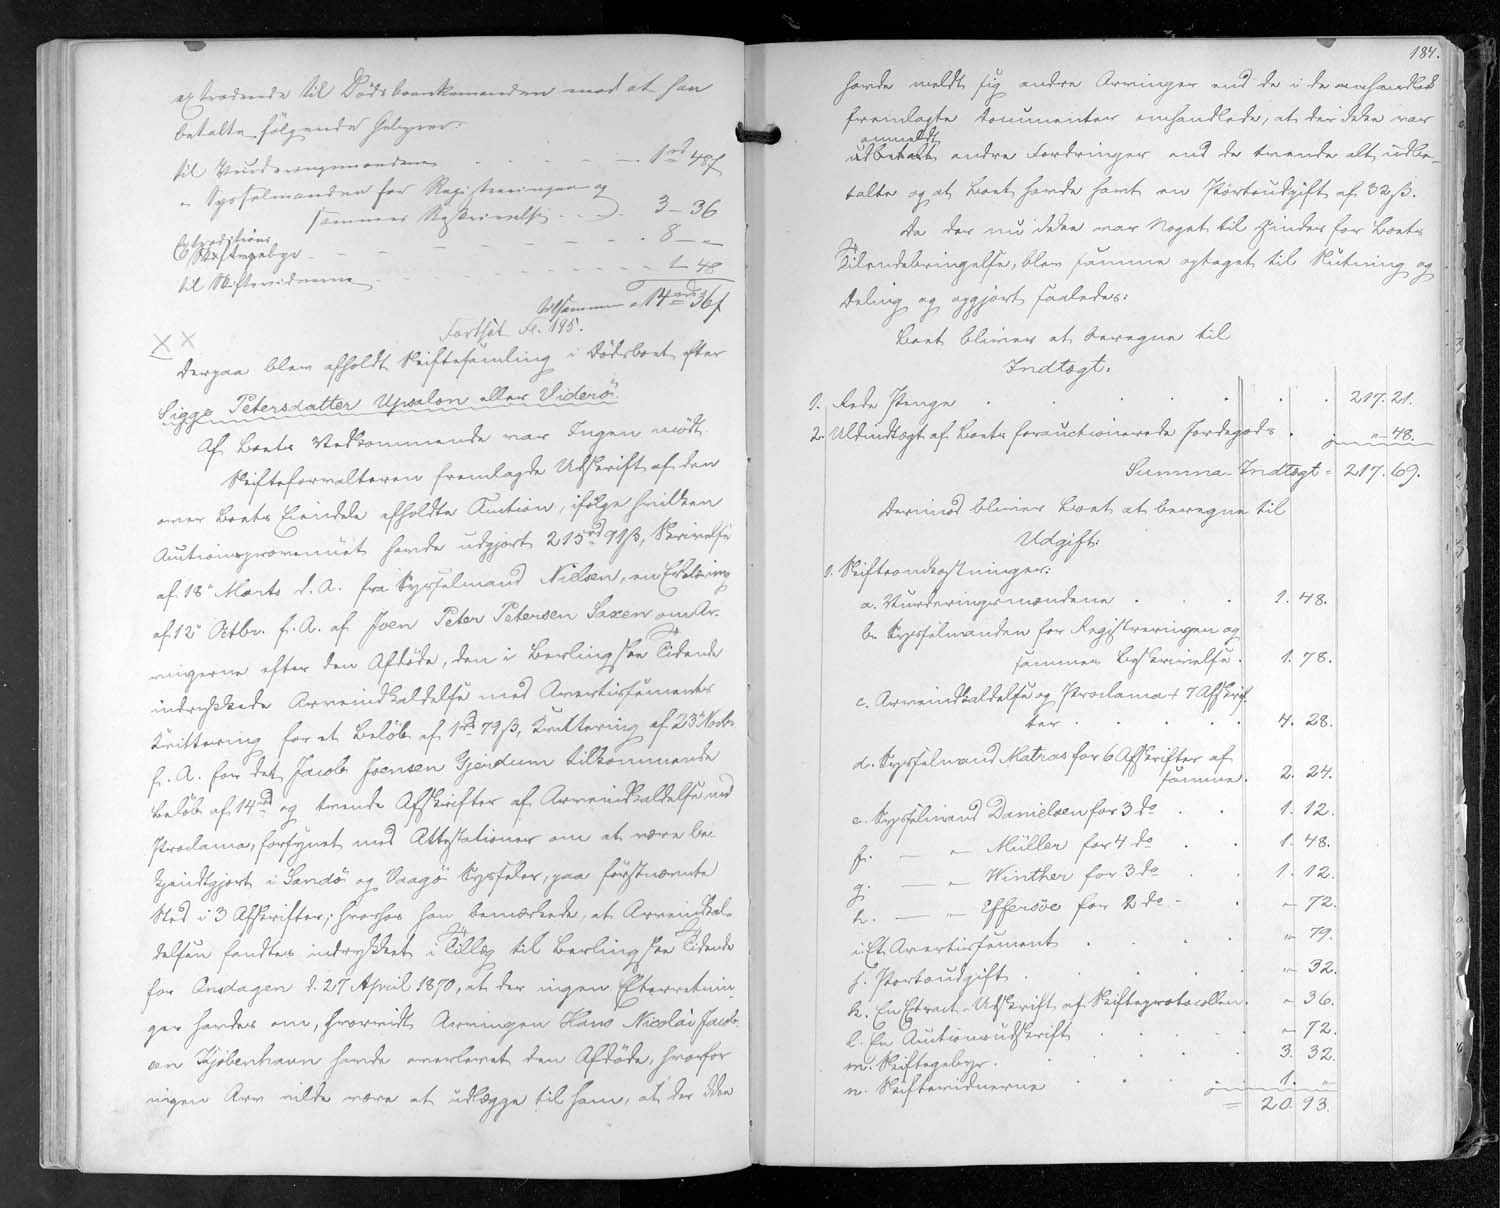 extraderede til Dødsboenkemanden mod at han
betalte følgende Gebyrer:
til Vurderingsmændene . . . . 1 rd 48 ß
" Sysselmanden for Registreringen og
sammes Beskrivelse . . . 3 – 36
Extraditions
Skiftegebyr - - - - - - - 8 – "
til Skiftevidnerne - - - - - - 1 – 48
tilsammen = 14 rd 36 ß
Fortsat Fol. 195.
Derpaa blev afholdt Skiftesamling i Dødsboet efter
Sigge Petersdatter Upsalon eller Viderö.
Af Boets Vedkommende var Ingen mødt.
Skifteforvalteren fremlagde Udskrift af den
over Boets Eiendele afholdte Auction, ifølge hvilken
Auctionsprovenuet havde udgjort 215 rd 91 ß, Skrivelse
af 18de Marts d. A. fra Sysselmand Nielsen, en Erklæring
af 12te Octbr. f. A. af Joen Peter Petersen Saxen om Ar-
vingerne efter den Afdøde, den i Berlingske Tidende
indrykkede Arveindkaldelse med Avertissements
Qvittering for et Beløb af 1 rd 79 ß, Qvittering af 23de Novbr.
f. A. for det Jacob Joensen Gjerdum tilkommende
Beløb af 14 rd og trende Afskrifter af Arveindkaldelse med
Proclama, forsynet med Attestationer om at være be-
kjendtgjort i Sandö og Vaagö Sysseler, paa førstnævnte
Sted i 3 Afskrifter; hvorhos han bemærkede, at Arveindkal-
delsen fandtes indrykket i Tillæg til Berlingske Tidende
for Onsdagen d. 27 April 1870, at der ingen Efterretnin-
ger havdes om, hvorvidt Arvingen Hans Nicolai Jacob-
sen Kjøbenhavn havde overlevet den Afdøde, hvorfor
ingen Arv vilde være at udlægge til ham, at der ikke
184.
havde meldt sig andre Arvinger end de i de omhandlede
fremlagte Documenter omhandlede, at der ikke var
anmeldt
udbetalt andre Fordringer end de trende alt udbe-
talte og at Boet havde havt en Portoudgift af 32 ß.
Da der nu ikke var Noget til Hinder for Boets
Tilendebringelse, blev samme optaget til Slutning og
Deling og opgjort saaledes:
Boet bliver at beregne til
Indtægt:
1. Rede Penge . . . . . . 217. 21.
2. Uldindtægt af Boets forauctionerede Jordegods . " – 48.
Summa Indtægt = 217. 69.
Derimod bliver Boet at beregne til
Udgift:
1. Skifteomkostninger:
a. Vurderingsmændene . . . 1. 48.
b. Sysselmanden for Registreringen og
sammes Beskrivelse . 1. 78.
c. Arveindkaldelse og Proclama + 7 Afskrif-
ter . . . . . 4. 28.
d. Sysselmand Matras for 6 Afskrifter af
samme . 2. 24.
e. Sysselmand Danielsen for 3 do . . 1. 12.
f. — " Müller for 4 do . . 1. 48.
g. — " Winther for 3 do . . 1. 12.
h. — " Effersöe for 2 do - . " 72.
i. Et Avertissement . . . . " 79.
j. Portoudgift . . . . . " 32.
k. En Extract-Udskrift af Skifteprotocollen . " 36.
l. En Auctionsudskrift . . . . " 72.
m. Skiftegebyr . . . . . 3. 32.
n. Skiftevidnerne . . . . 1. "
= 20. 93.